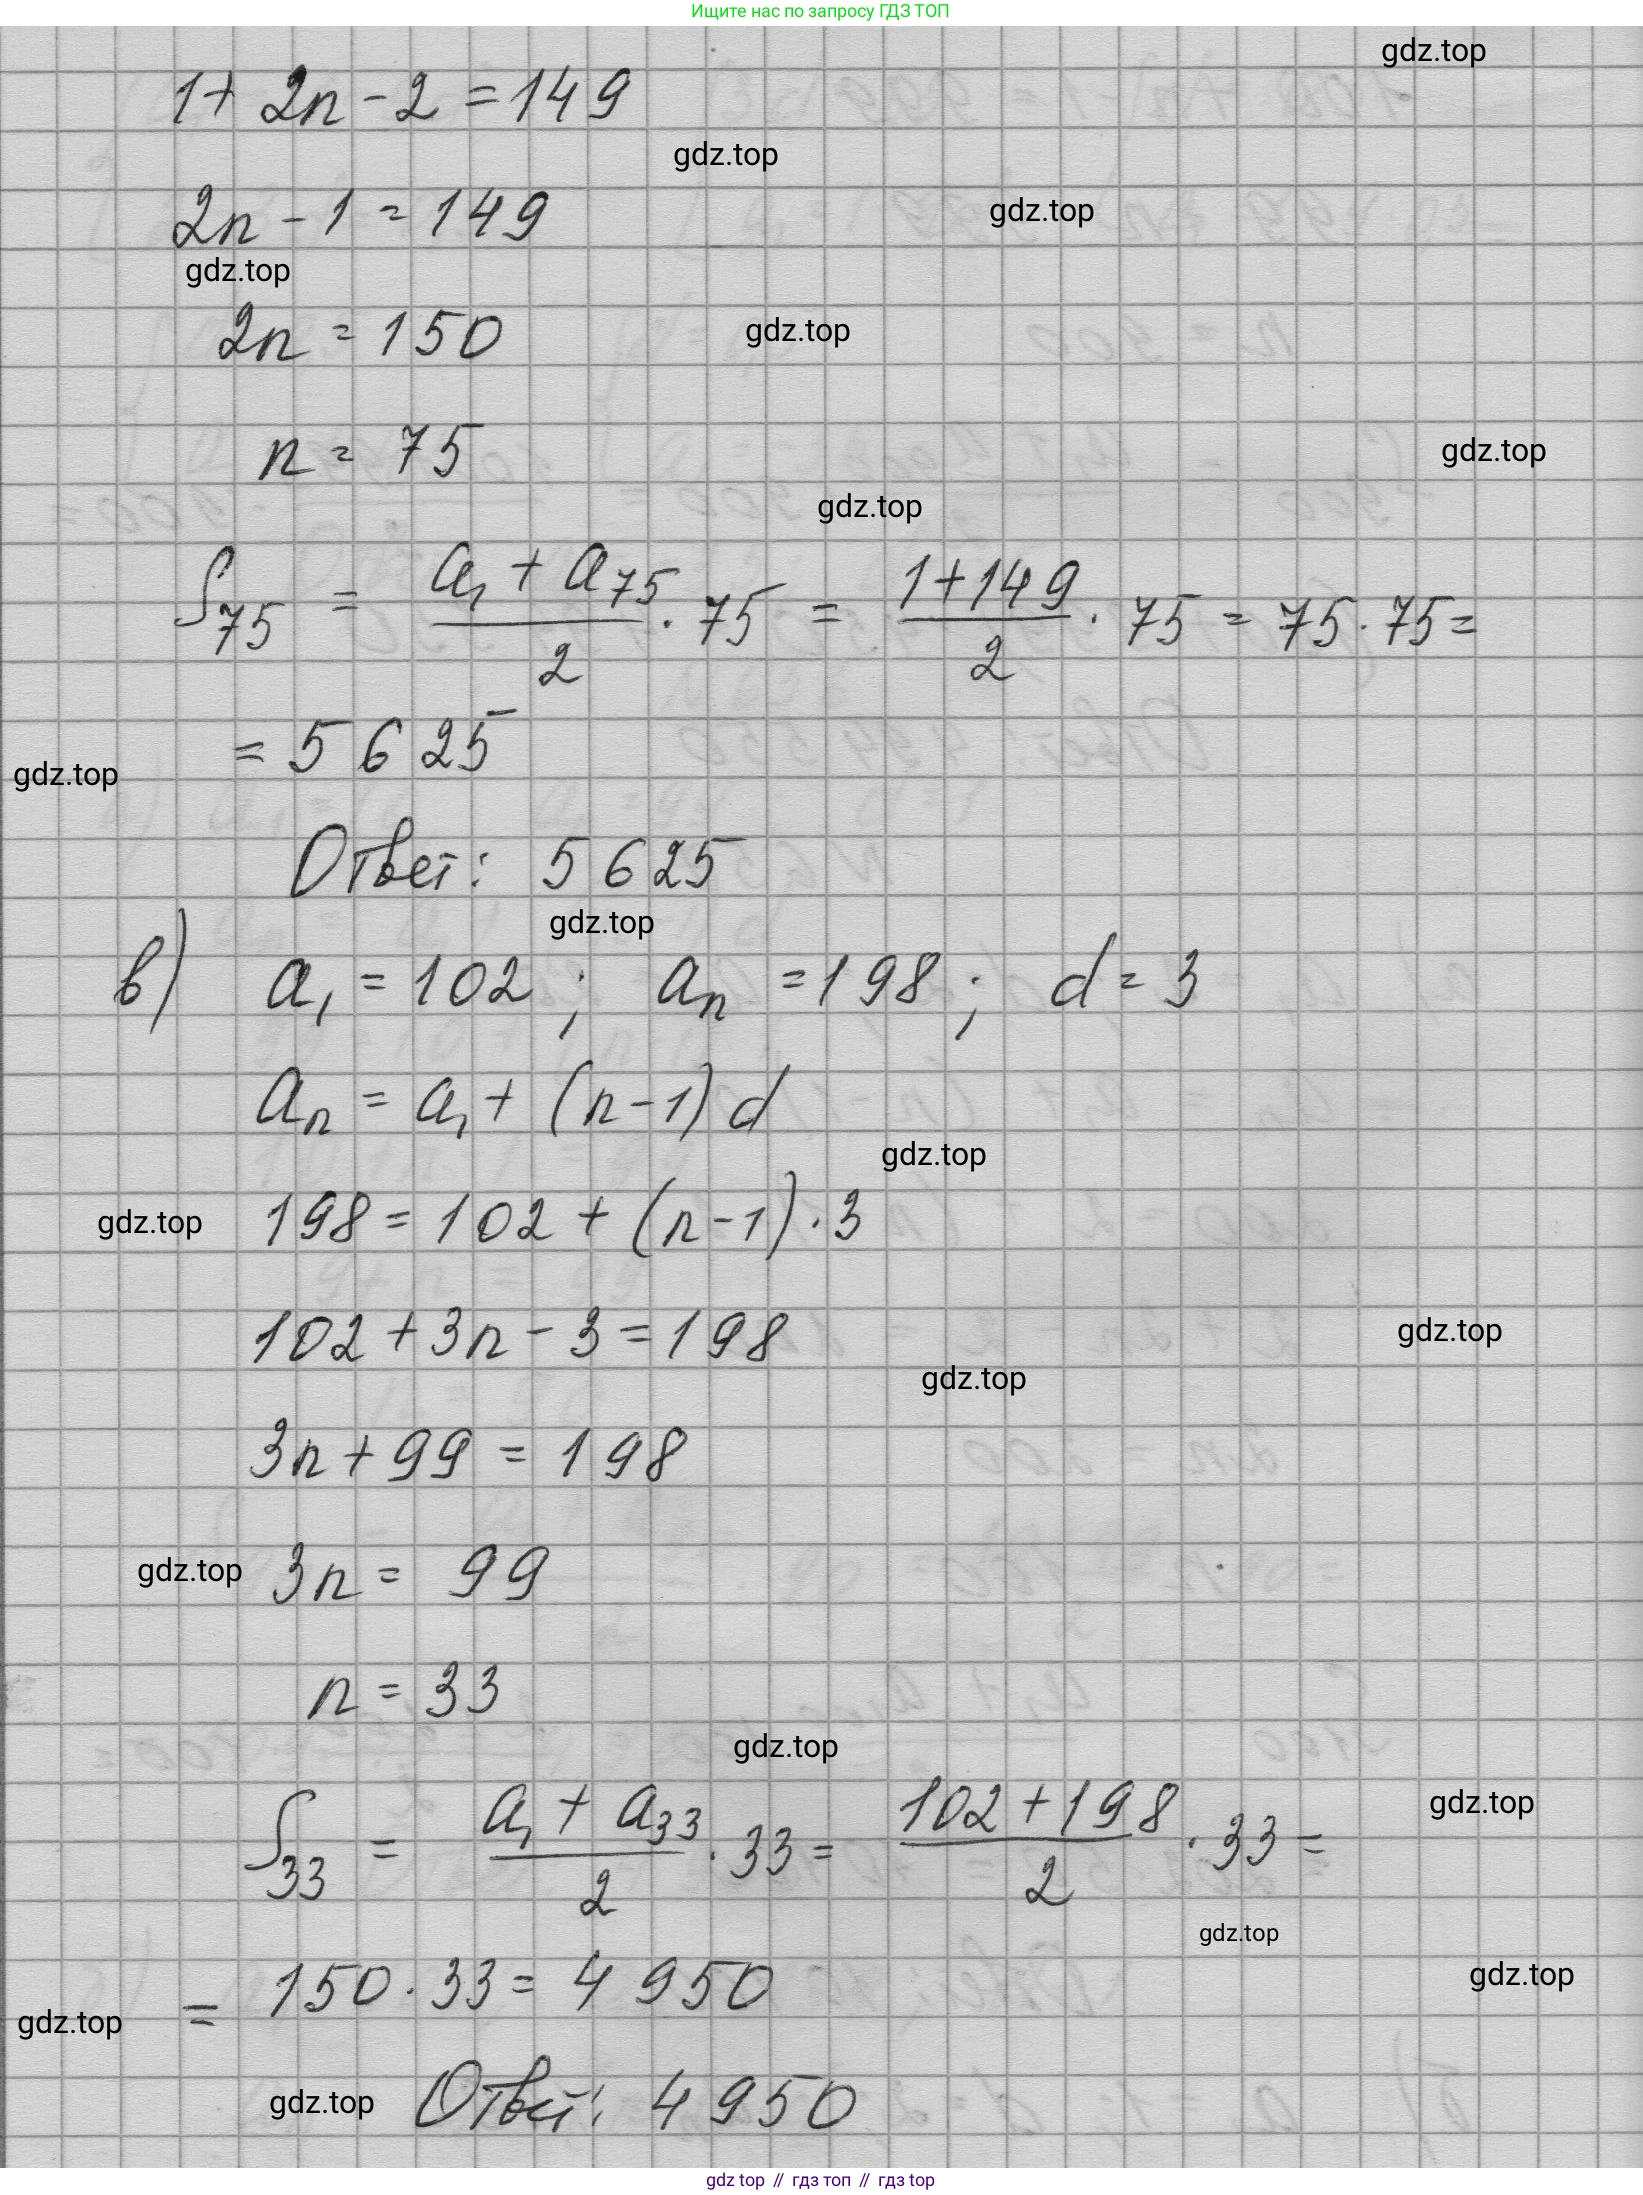 Ищите нас по запросу ГДЗ ТОП
gdz.top
1+ 2n - 2 = 149
gdz.top
2n - 1 = 149
gdz.top
gdz.top
2n = 150
gdz.top
n = 75
gdz.top
gdz.top
S₇₅ = (a₁ + a₇₅)/2 · 75 = (1+149)/2 · 75 = 75 · 75 =
= 5625
gdz.top
Ответ: 5625
gdz.top
в) a₁ = 102 ; aₙ = 198 ; d = 3
aₙ = a₁ + (n-1) d
gdz.top
gdz.top 198 = 102 + (n-1) · 3
102 + 3n - 3 = 198
gdz.top
gdz.top
3n + 99 = 198
gdz.top 3n = 99
n = 33
gdz.top
gdz.top
S₃₃ = (a₁ + a₃₃)/2 · 33 = (102 + 198)/2 · 33 =
gdz.top
= 150 · 33 = 4950
gdz.top
gdz.top
gdz.top Ответ: 4950
gdz top // гдз топ // гдз top